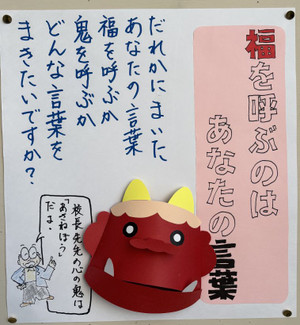 福を呼ぶのは
あなたの言葉
だれかにまいた
あなたの言葉
福を呼ぶか
鬼を呼ぶか
どんな言葉を
まきたいですか？
校長先生の心の鬼は
「あさねぼう」
だよ。